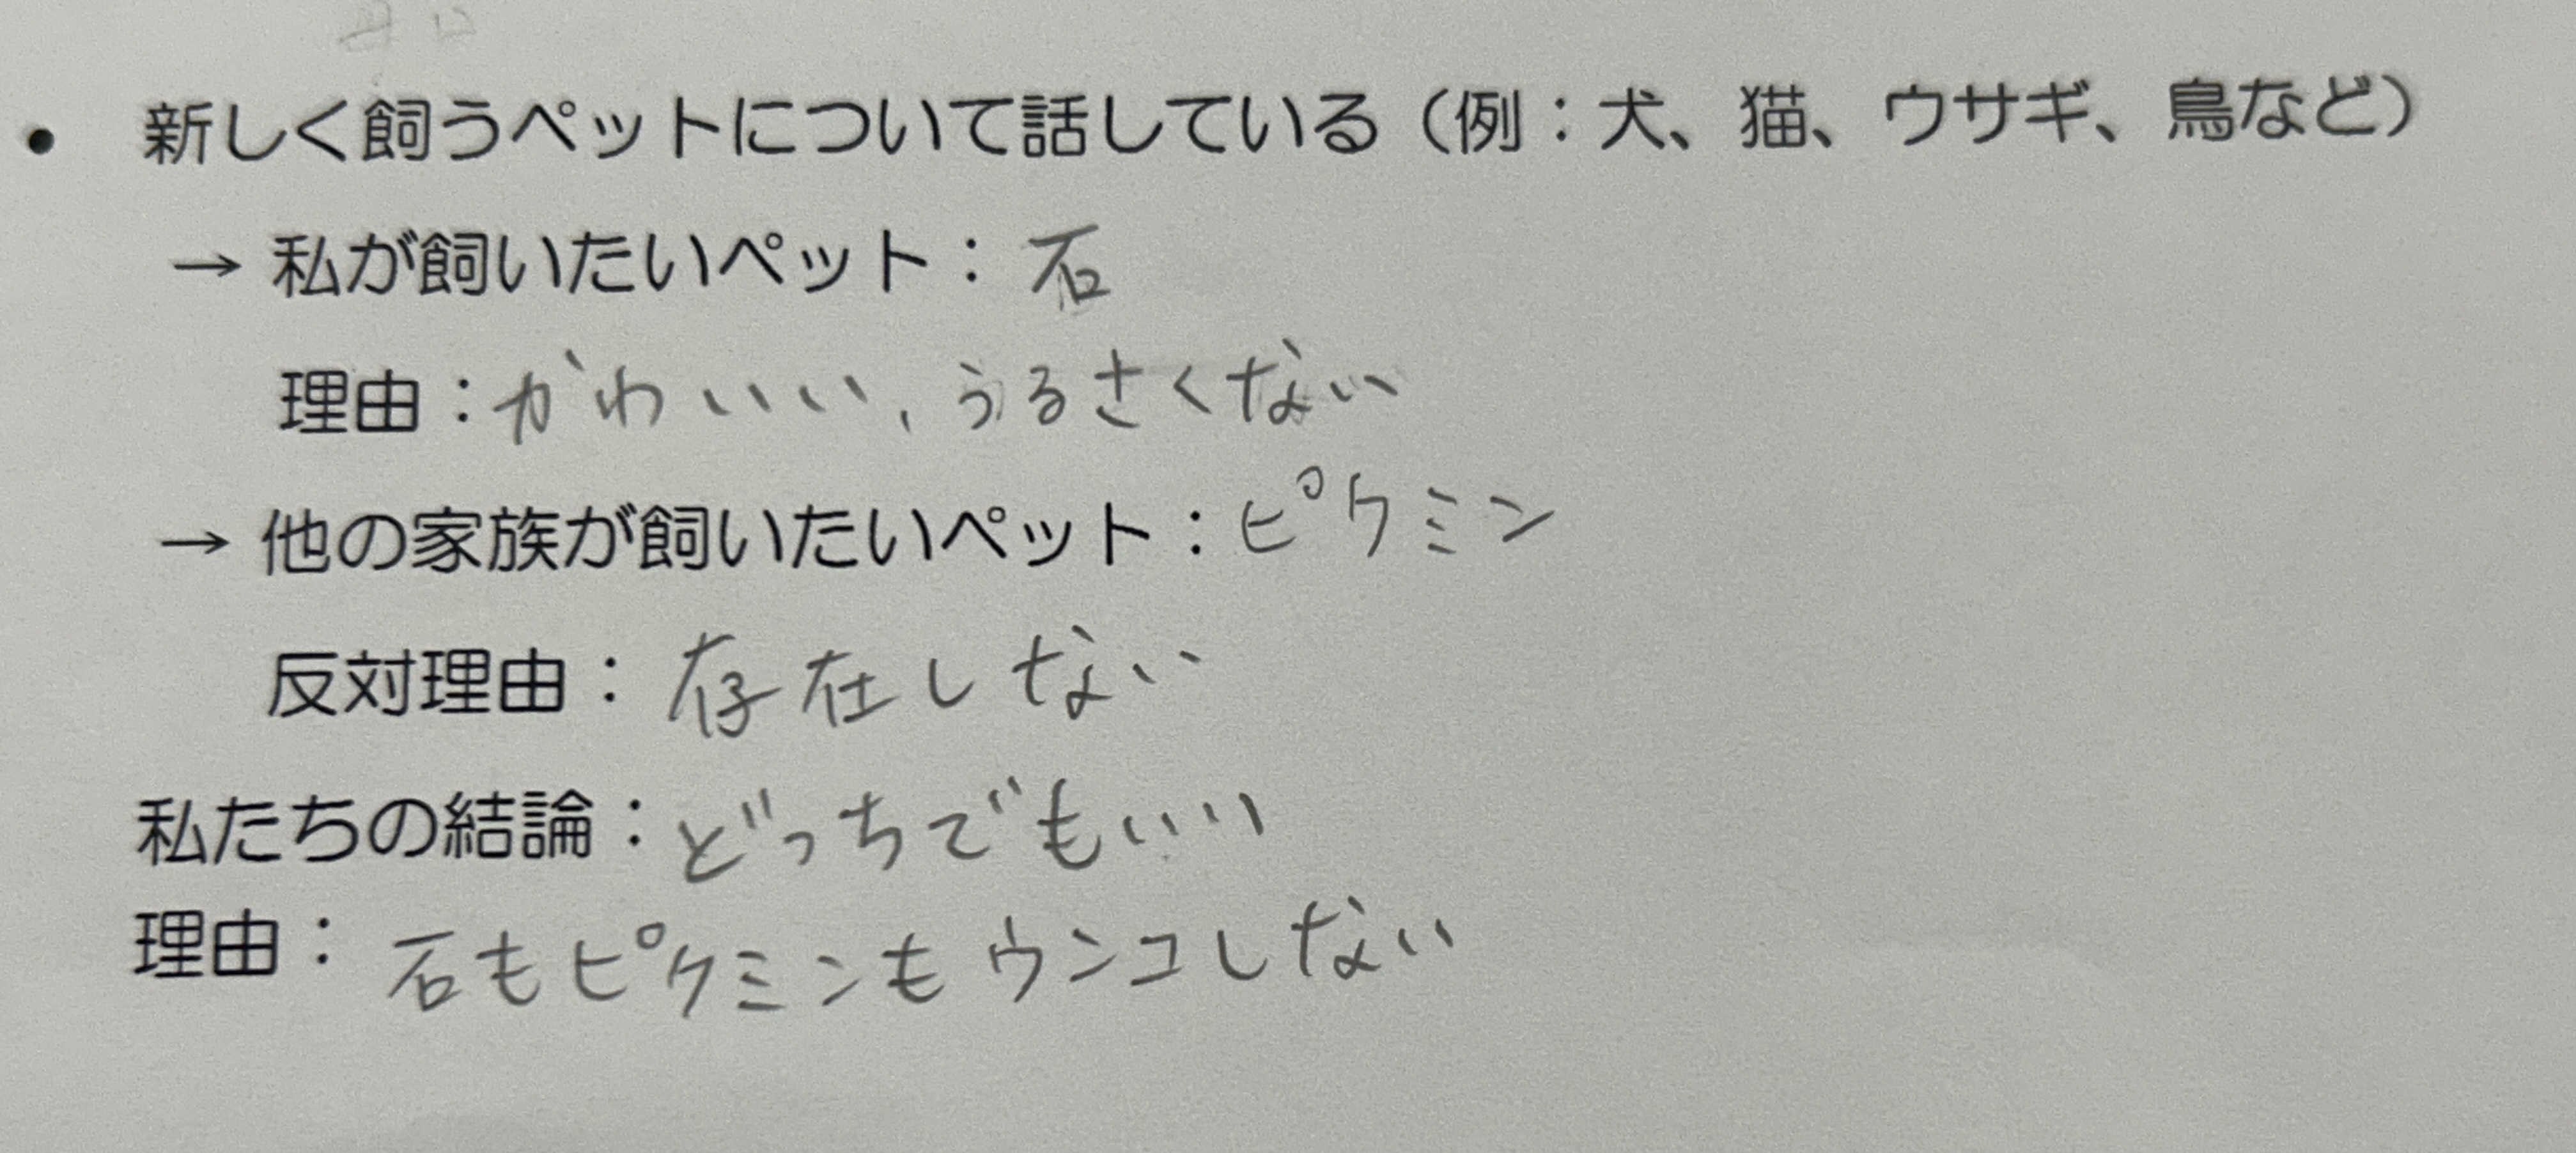 • 新しく飼うペットについて話している（例：犬、猫、ウサギ、鳥など）
→ 私が飼いたいペット：石
理由：かわいい、うるさくない
→ 他の家族が飼いたいペット：ピクミン
反対理由：存在しない
私たちの結論：どっちでもいい
理由：石もピクミンもウンコしない